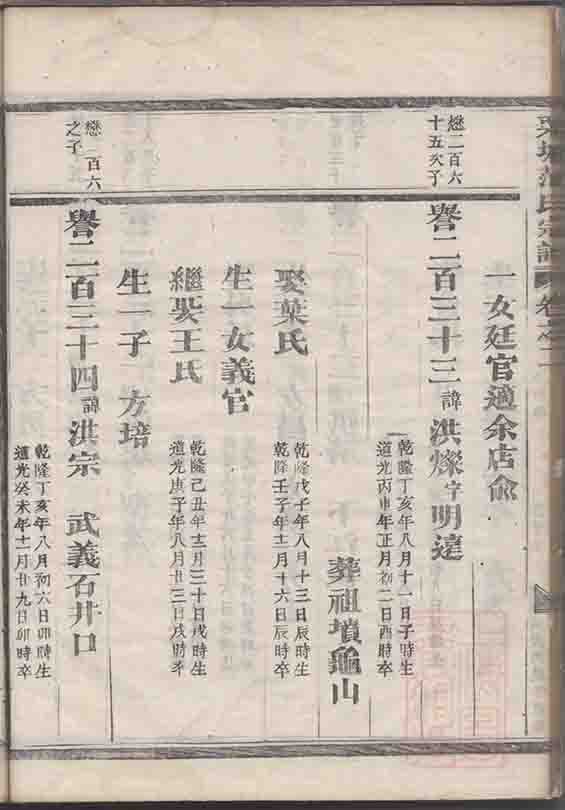 氏宗譜 卷之二
一女廷官適余店俞
懋二百六
十五次子
譽二百三十三諱洪燦字明達
乾隆丁亥年八月十一日子時生
道光丙申年正月初二日酉時卒
葬祖墳龜山
娶葉氏
乾隆戊子年八月十三日辰時生
乾隆壬子年十一月十六日辰時卒
生一女義官
繼娶王氏
乾隆己丑年十二月三十日戌時生
道光庚子年八月廿三日戌時卒
生一子 方培
懋二百六
之子
譽二百三十四諱洪宗 武義石井口
乾隆丁亥年八月初六日卯時生
道光癸未年十二月廿九日卯時卒